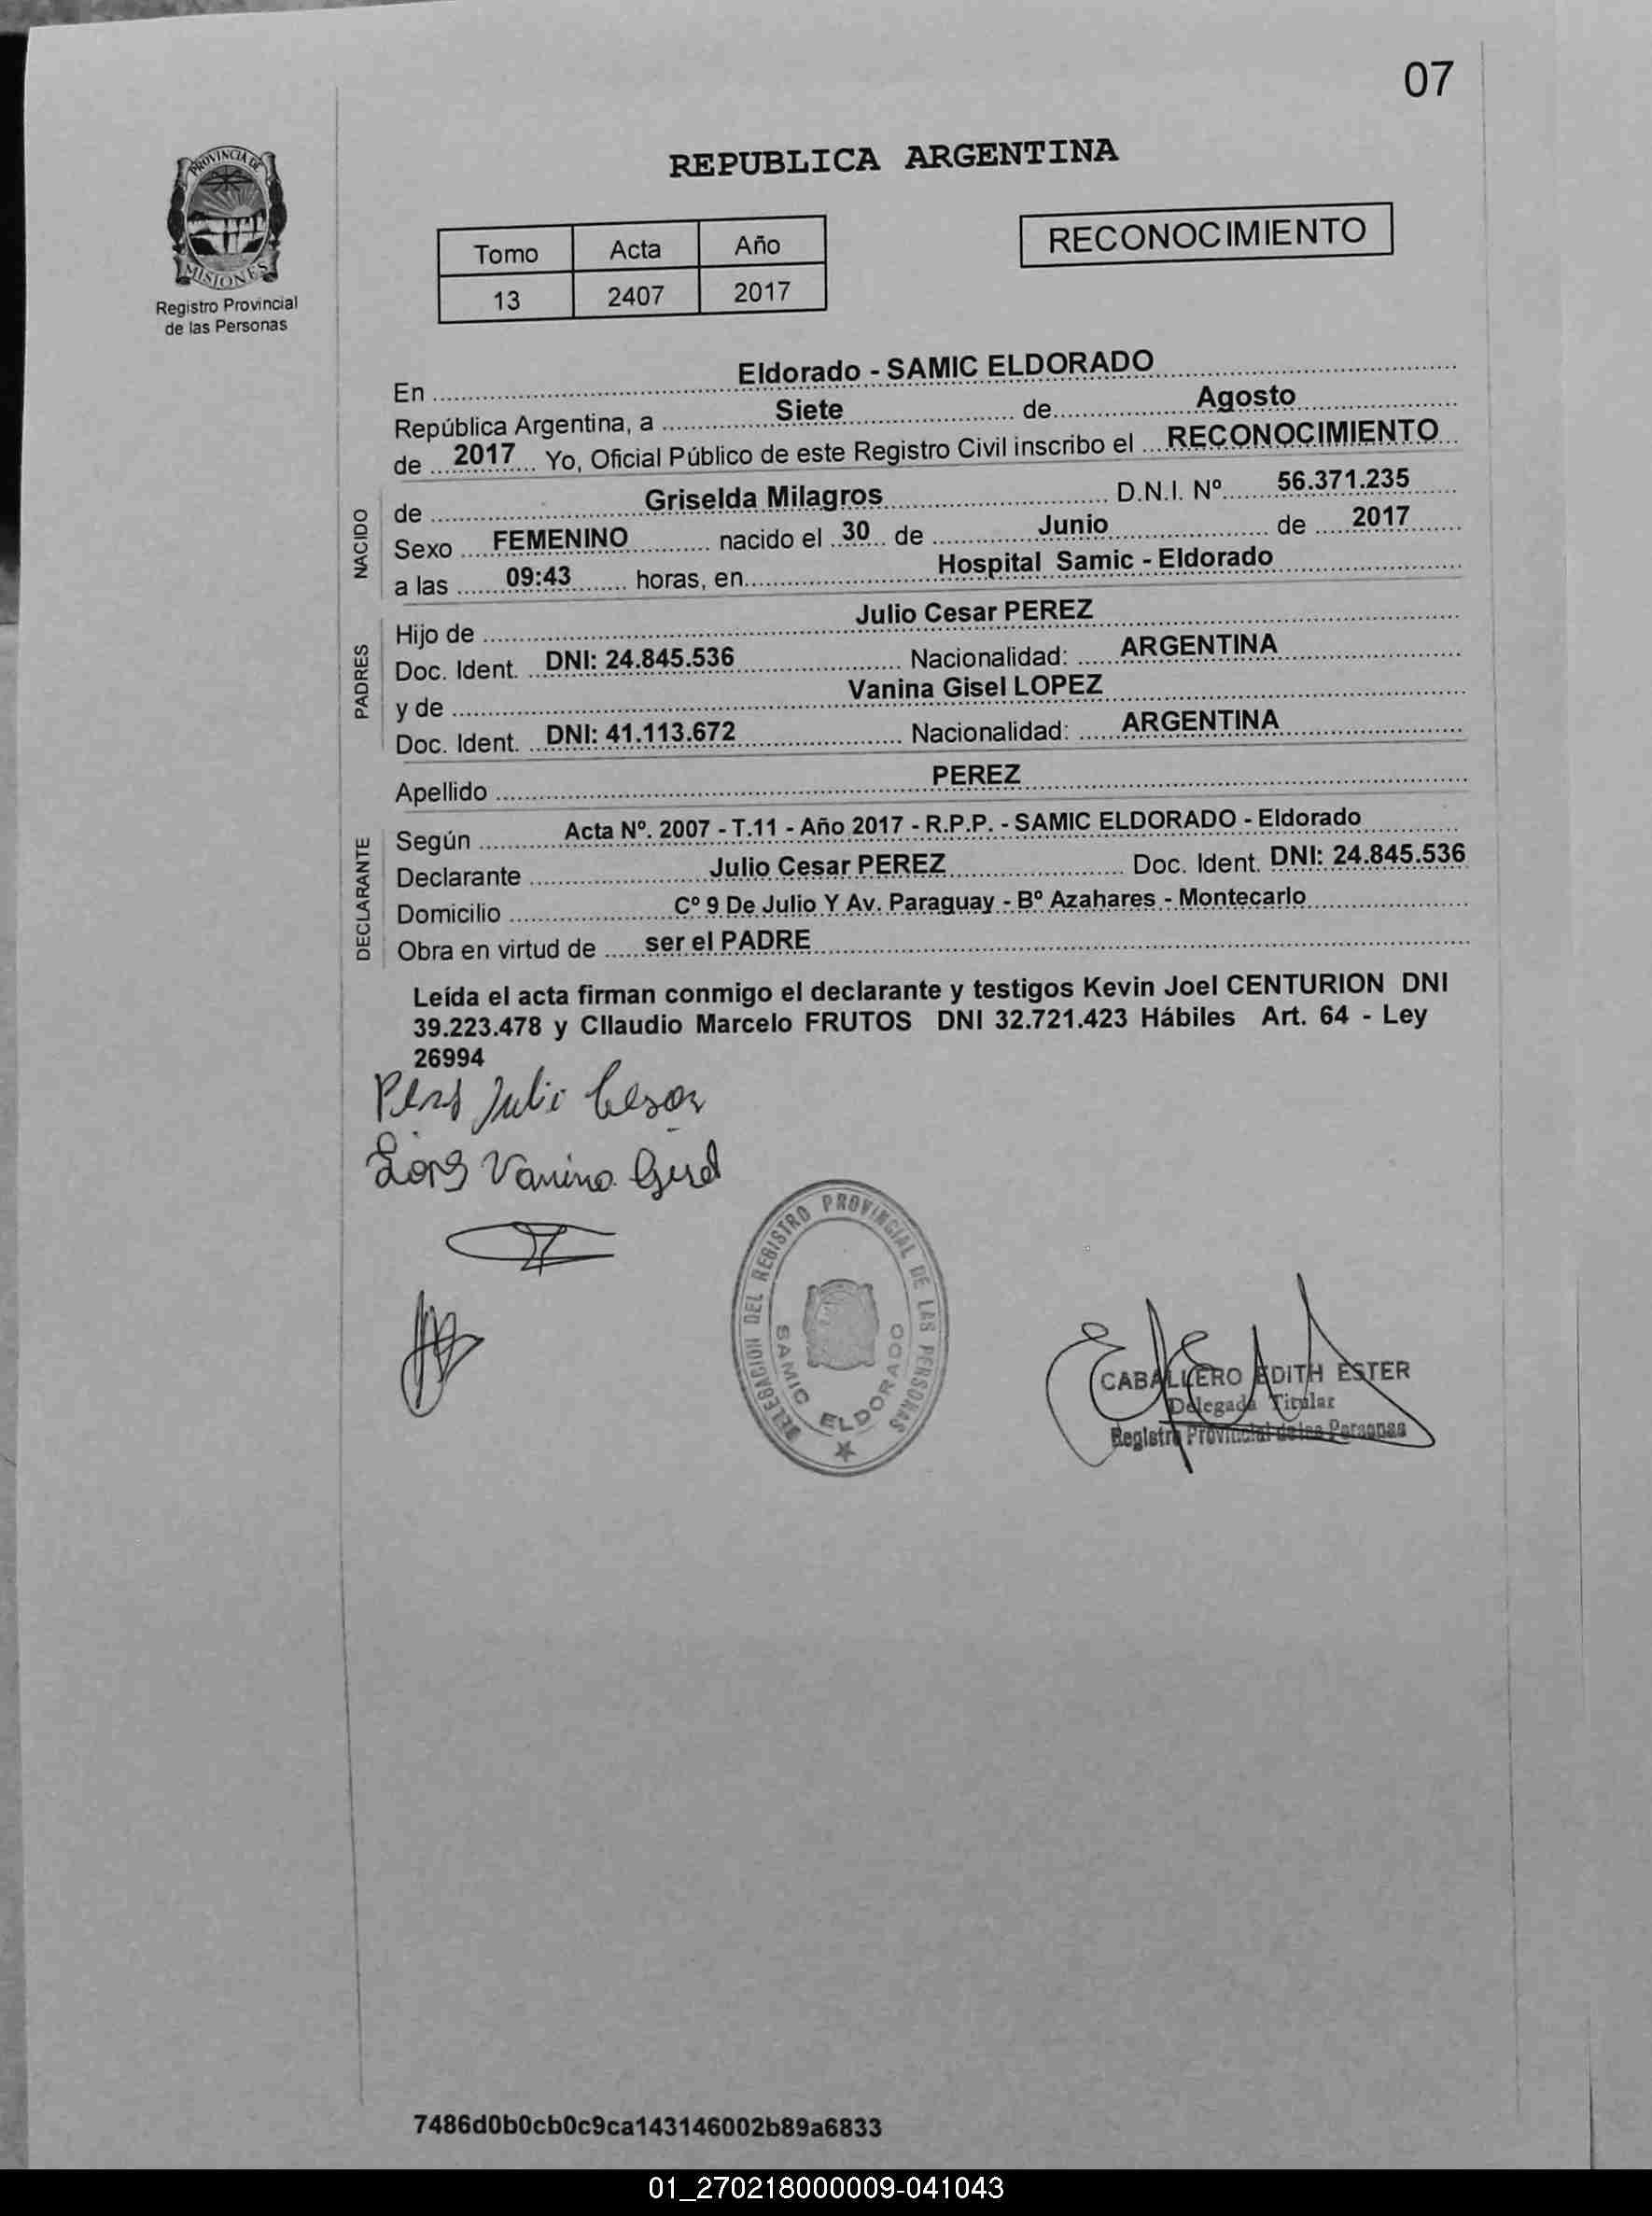 07
PROVINCIA DE
MISIONES
Registro Provincial
de las Personas
REPUBLICA ARGENTINA
Tomo Acta Año
13 2407 2017
RECONOCIMIENTO
En Eldorado - SAMIC ELDORADO
República Argentina, a Siete de Agosto
de 2017 Yo, Oficial Público de este Registro Civil inscribo el RECONOCIMIENTO
NACIDO
de Griselda Milagros D.N.I. Nº 56.371.235
Sexo FEMENINO nacido el 30 de Junio de 2017
a las 09:43 horas, en Hospital Samic - Eldorado
PADRES
Hijo de Julio Cesar PEREZ
Doc. Ident. DNI: 24.845.536 Nacionalidad: ARGENTINA
y de Vanina Gisel LOPEZ
Doc. Ident. DNI: 41.113.672 Nacionalidad: ARGENTINA
Apellido PEREZ
DECLARANTE
Según Acta Nº. 2007 - T.11 - Año 2017 - R.P.P. - SAMIC ELDORADO - Eldorado
Declarante Julio Cesar PEREZ Doc. Ident. DNI: 24.845.536
Domicilio Cº 9 De Julio Y Av. Paraguay - Bº Azahares - Montecarlo
Obra en virtud de ser el PADRE
Leída el acta firman conmigo el declarante y testigos Kevin Joel CENTURION DNI
39.223.478 y Cllaudio Marcelo FRUTOS DNI 32.721.423 Hábiles Art. 64 - Ley
26994
Julio Cesar
Vanina
DELEGACION DEL REGISTRO PROVINCIAL DE LAS PERSONAS
SAMIC ELDORADO
CABALLERO EDITH ESTER
Delegada Titular
Registro Provincial de las Personas
7486d0b0cb0c9ca143146002b89a6833
01_270218000009-041043